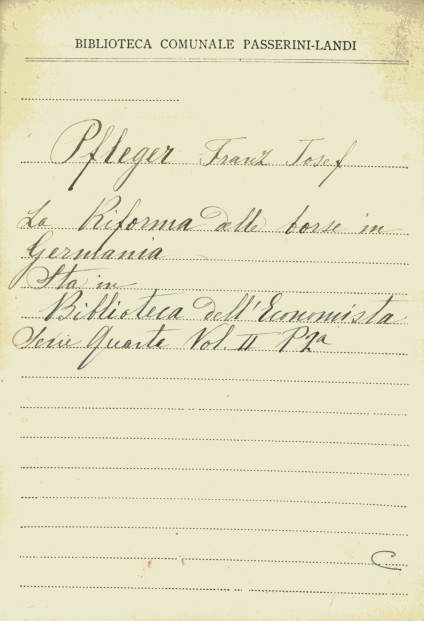 BIBLIOTECA COMUNALE PASSERINI-LANDI
Pfleger Franz Josef
La Riforma delle borse in
Germania
Sta in
Biblioteca dell'Economista
Serie Quarta Vol. II P2a
C